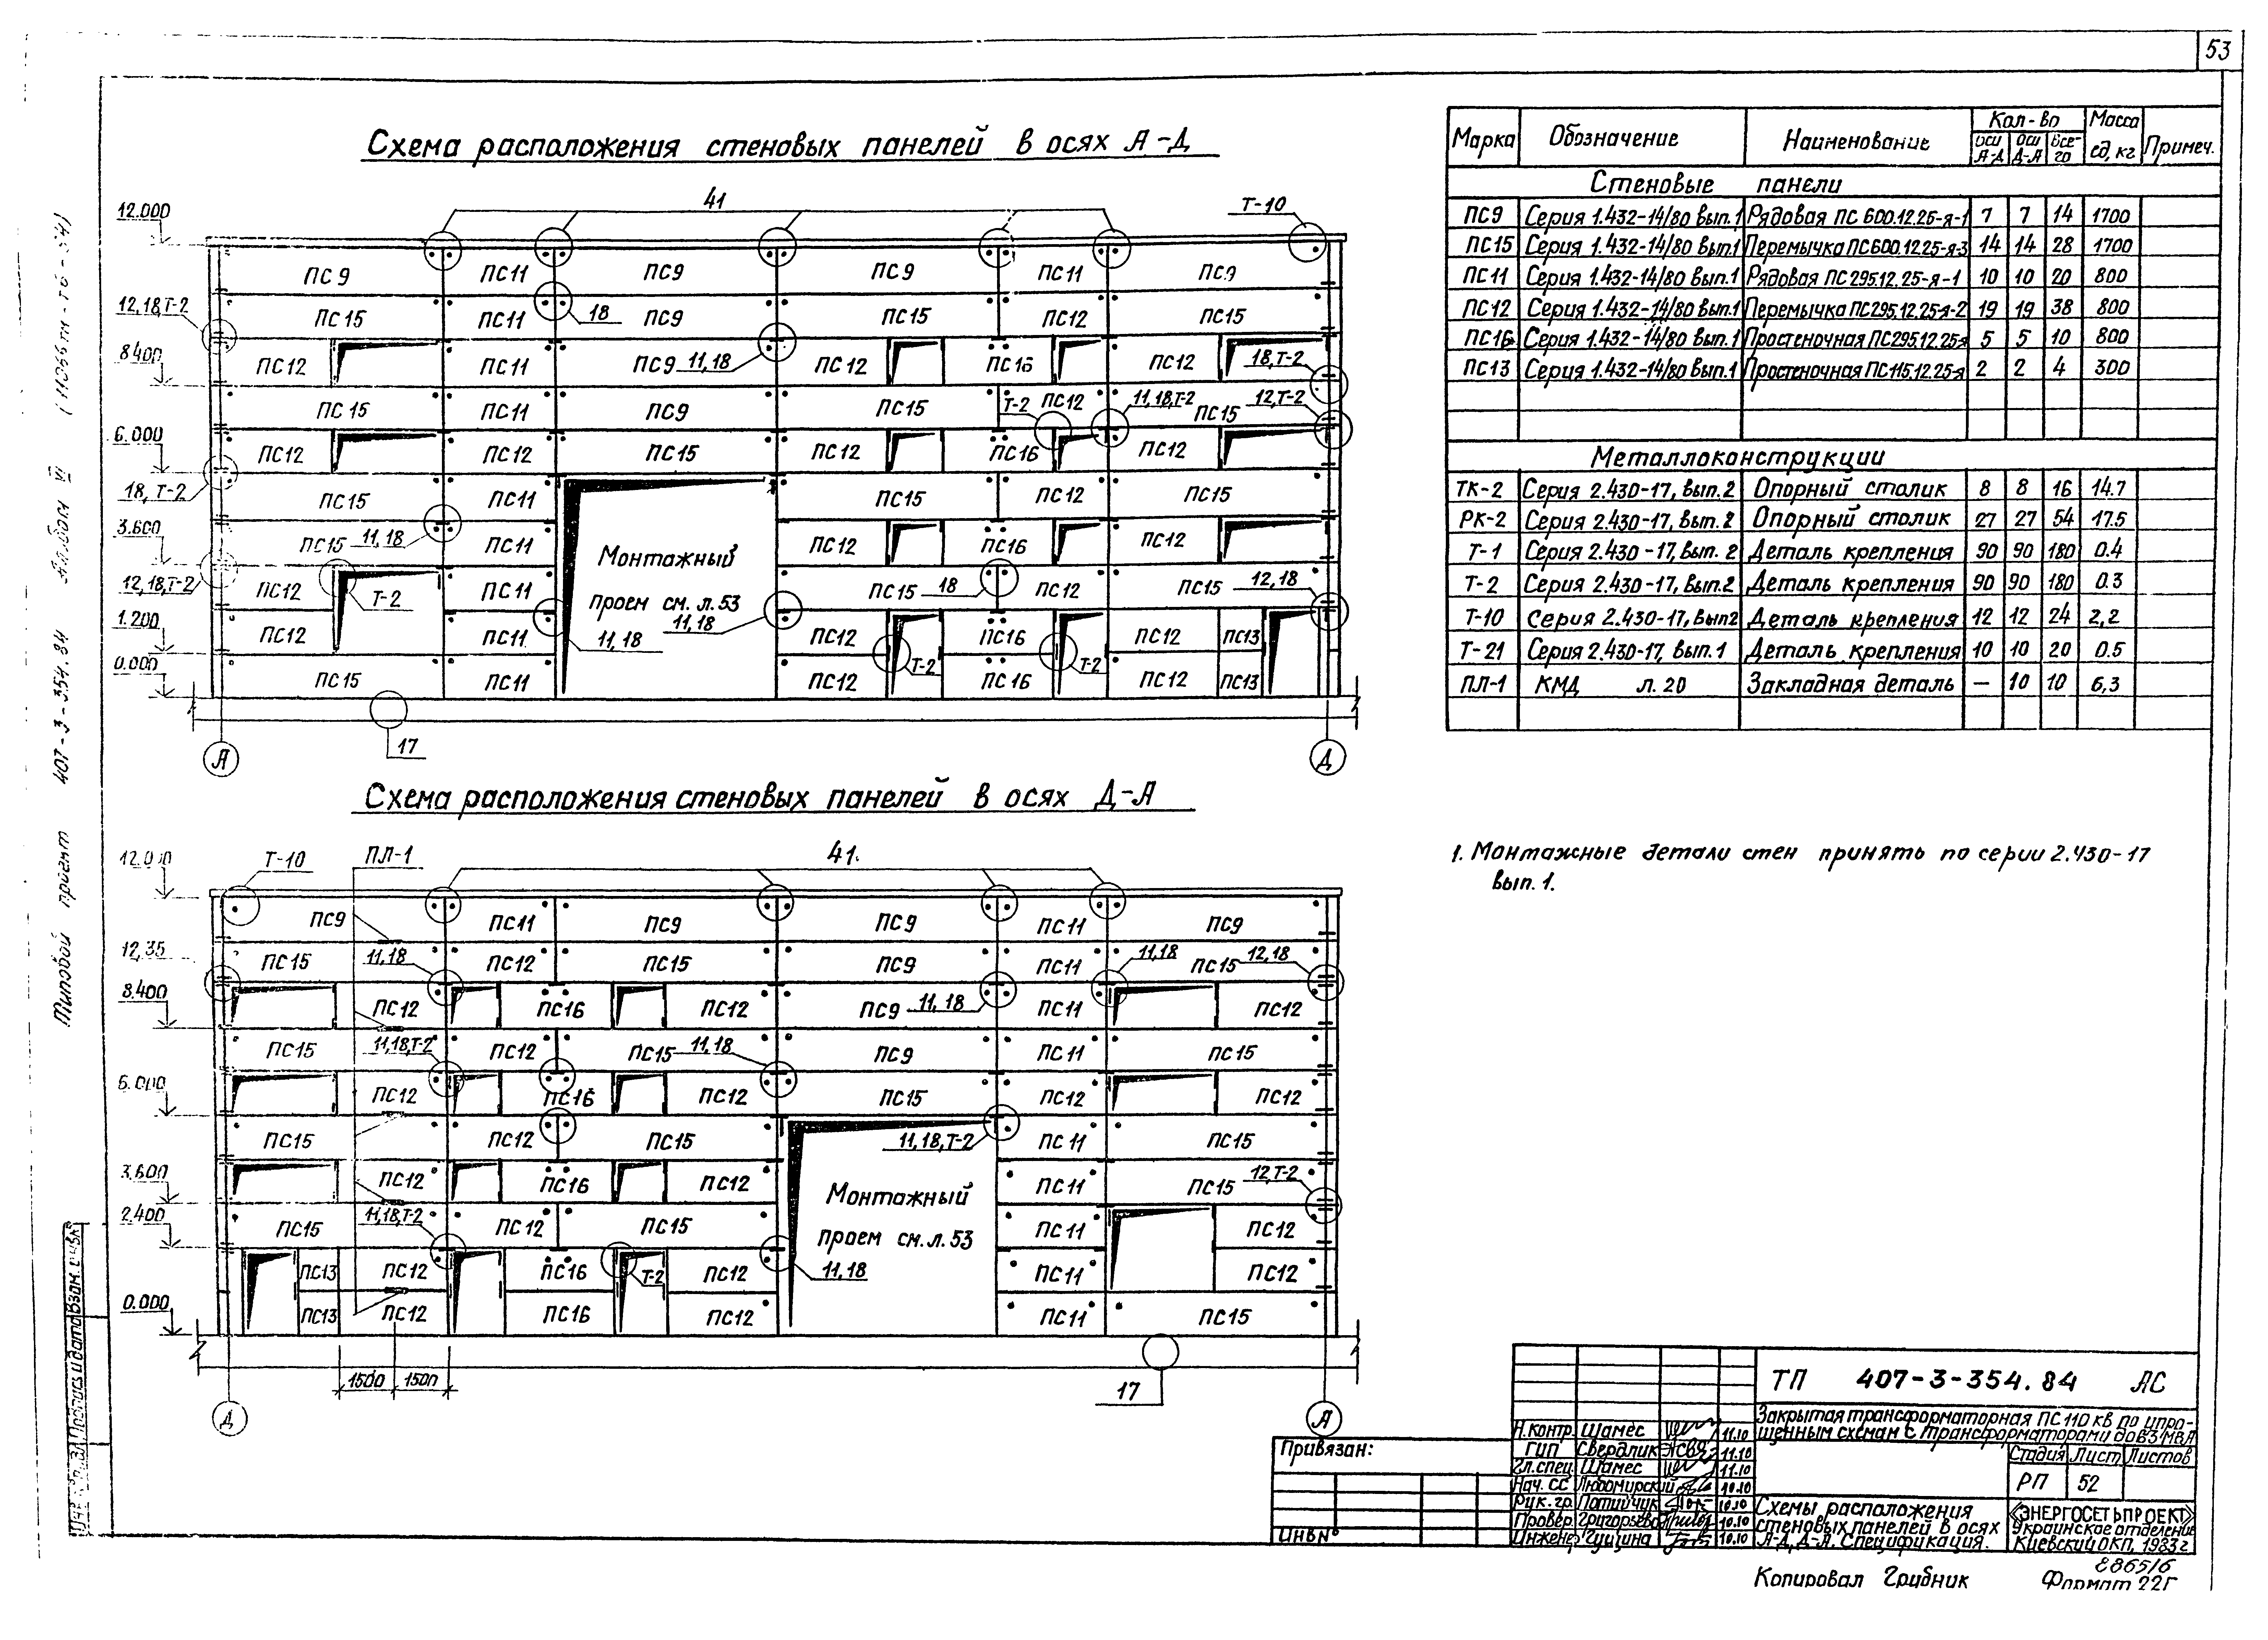 53
Схема расположения стеновых панелей в осях А-Д
41
Т-10
12.000
ПС9 ПС11 ПС9 ПС9 ПС11 ПС9
12,18,Т-2
ПС15 ПС11 18 ПС9 ПС15 ПС12 ПС15
8.400
ПС12 ПС11 ПС9 11,18 ПС12 ПС16 ПС12 18,Т-2
ПС15 ПС11 ПС9 ПС15 Т-2 ПС12 11,18,Т-2 ПС15 12,Т-2
6.000
ПС12 ПС12 ПС15 ПС12 ПС16 ПС12
18,Т-2
ПС15 ПС11 ПС15 ПС12 ПС15
3.600
ПС15 11,18 ПС11 Монтажный ПС12 ПС16 ПС12
12,18,Т-2
ПС12 Т-2 ПС11 проем см. л.53 ПС15 18 ПС12 ПС15 12,18
1.200
ПС12 ПС11 11,18 11,18 ПС12 ПС16 ПС12 ПС13
0.000
ПС15 ПС11 ПС12 Т-2 ПС16 Т-2 ПС12 ПС13
17
А Д
Схема расположения стеновых панелей в осях Д-А
Т-10 ПЛ-1 41
ПС9 ПС11 ПС9 ПС9 ПС11 ПС9
12,35
ПС15 11,18 ПС12 ПС15 ПС9 ПС11 11,18 ПС15 12,18
8.400
ПС12 ПС16 ПС12 ПС9 11,18 ПС11 ПС12
ПС15 11,18,Т-2 ПС12 ПС15 11,18 ПС9 ПС11 ПС15
6.000
ПС12 ПС16 ПС12 ПС15 ПС12 ПС12
ПС15 ПС12 ПС15 11,18,Т-2 ПС11 ПС15
3.600
ПС12 ПС16 ПС12 Монтажный ПС11 ПС15 12,Т-2
2.400
ПС15 11,18,Т-2 ПС12 ПС15 проем см. л.53 ПС11 ПС12
ПС13 ПС12 ПС16 Т-2 ПС12 11,18 ПС11 ПС12
0.000
ПС13 ПС12 ПС16 ПС12 ПС11 ПС15
1500 1500
17
Д А
Марка Обозначение Наименование Кол-во Масса ед, кг Примеч.
оси А-Д оси Д-А Все-го
Стеновые панели
ПС9 Серия 1.432-14/80 вып.1 Рядовая ПС 600.12.25-я-1 7 7 14 1700
ПС15 Серия 1.432-14/80 вып.1 Перемычка ПС600.12.25-я-3 14 14 28 1700
ПС11 Серия 1.432-14/80 вып.1 Рядовая ПС295.12.25-я-1 10 10 20 800
ПС12 Серия 1.432-14/80 вып.1 Перемычка ПС295.12.25-я-2 19 19 38 800
ПС16 Серия 1.432-14/80 вып.1 Простеночная ПС295.12.25-я 5 5 10 800
ПС13 Серия 1.432-14/80 вып.1 Простеночная ПС115.12.25-я 2 2 4 300
Металлоконструкции
ТК-2 Серия 2.430-17, вып.2 Опорный столик 8 8 16 14.7
РК-2 Серия 2.430-17, вып.2 Опорный столик 27 27 54 17.5
Т-1 Серия 2.430-17, вып. 2 Деталь крепления 90 90 180 0.4
Т-2 Серия 2.430-17, вып.2 Деталь крепления 90 90 180 0.3
Т-10 Серия 2.430-17, вып2 Деталь крепления 12 12 24 2,2
Т-21 Серия 2.430-17, вып.1 Деталь крепления 10 10 20 0.5
ПЛ-1 КМД л. 20 Закладная деталь — 10 10 6,3
1. Монтажные детали стен принять по серии 2.430-17
вып. 1.
ТП 407-3-354.84 АС
Закрытая трансформаторная ПС 110 кв по упро-
щенным схемам с трансформаторами до 63 МВА
Стадия Лист Листов
РП 52
Схемы расположения
стеновых панелей в осях
А-Д, Д-А. Спецификация.
«ЭНЕРГОСЕТЬПРОЕКТ»
Украинское отделение
Киевский ОКП, 1983 г
Н.контр. Шамес 11.10
ГИП Свердлик 11.10
Гл.спец. Шамес 11.10
Нач. СС Любомирский 10.10
Рук. гр. 10.10
Провер. Григорьева 10.10
Инженер 10.10
Привязан:
Инв №
Копировал Грибник
Формат 22Г
Типовой проект 407-3-354.84 Альбом VI
Подпись и дата Взам. инв.№